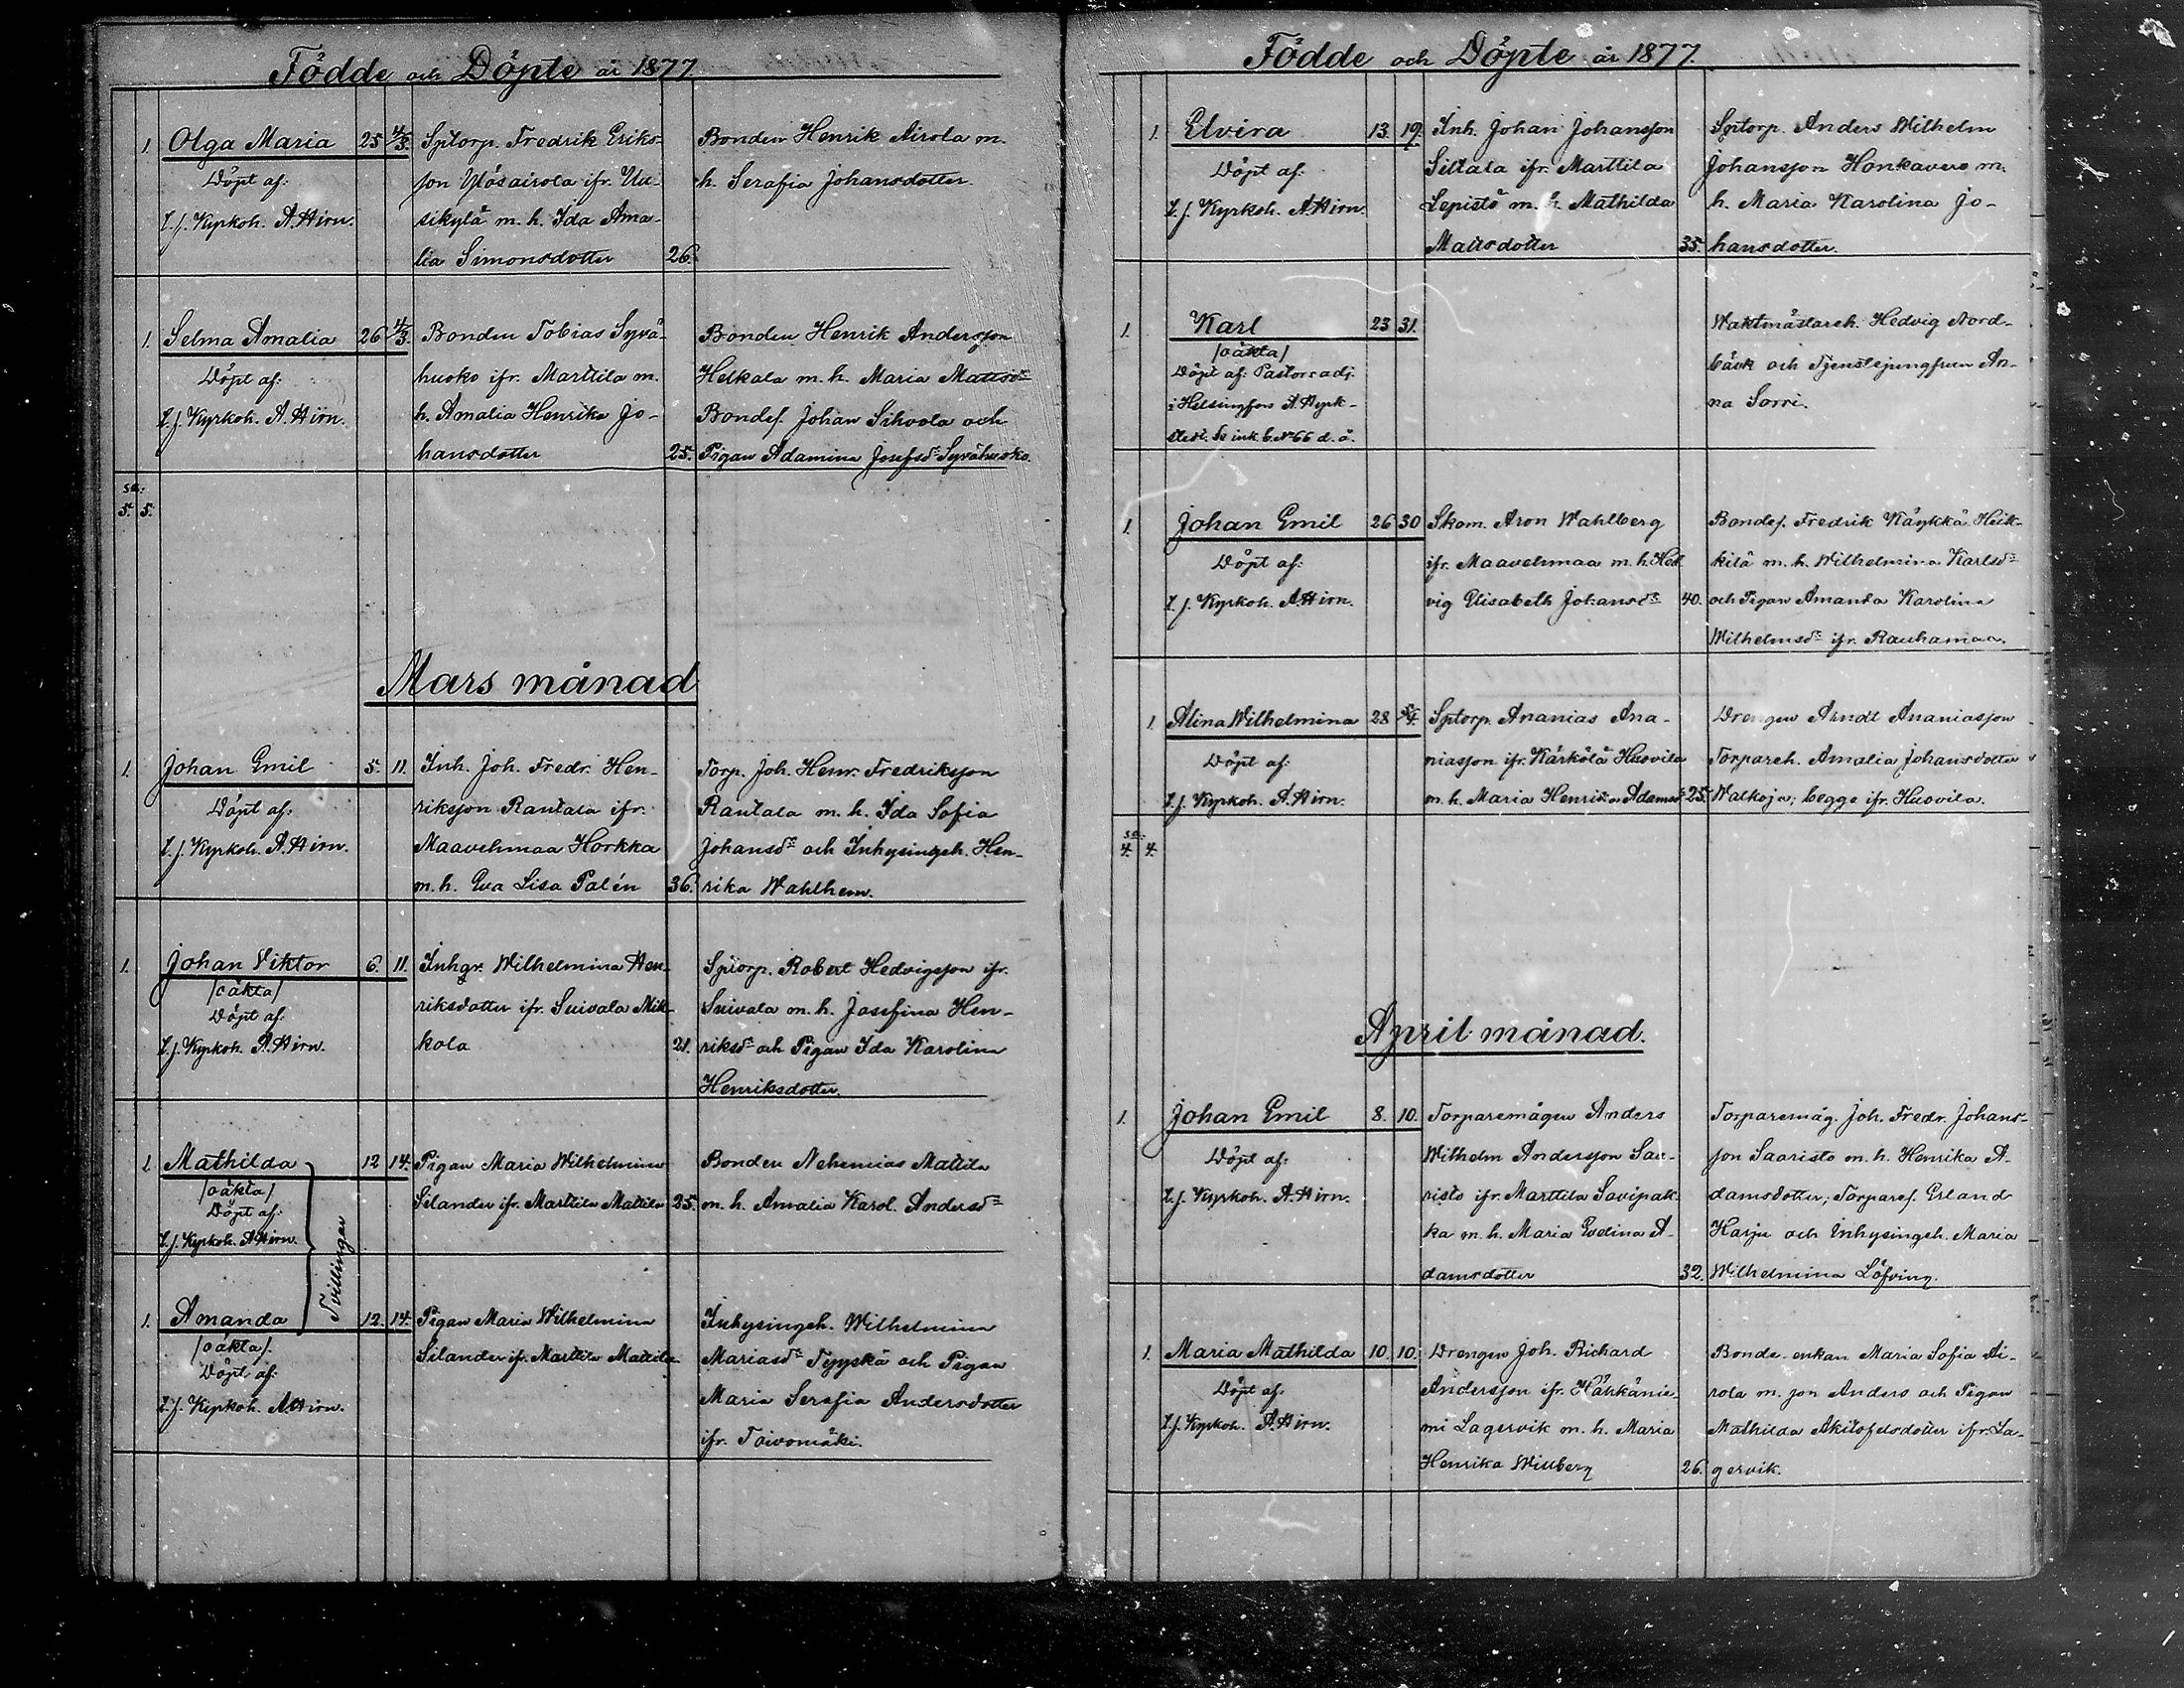 Födde och Döpte år 1877
1. Olga Maria 25 4/3. Sptorp. Fredrik Eriks- Bonden Henrik Airola m.
Döpt af: son Ylösairola ifr. Uu- h. Serafia Johansdotter.
t.f. Kyrkoh. A. Hirn. sikylä m. h. Ida Ama-
lia Simonsdotter 26.
1. Selma Amalia 26 4/3. Bonden Tobias Syvä- Bonden Henrik Andersson
Döpt af: huoko ifr. Marttila m. Helkala m. h. Maria Mattsdr
t.f. Kyrkoh. A. Hirn. h. Amalia Henrika Jo- Bondes. Johan Sihvola och
hansdotter 25. Pigan Adamina Josefsdr Syvähuoko.
sa:
5. 5.
Mars månad
1. Johan Emil 5. 11. Inh. Joh. Fredr. Hen- Torp. Joh. Henr. Fredriksson
Döpt af: riksson Rantala ifr. Rantala m. h. Ida Sofia
t.f. Kyrkoh. A. Hirn. Maavehmaa Horkka Johansdr och Inhysingeh. Hen-
m. h. Eva Lisa Palén 36. rika Wahlhem.
1. Johan Viktor 6. 11. Inhgr. Wilhelmina Hen- Sptorp. Robert Hedvigsson ifr.
/oäkta/
Döpt af: riksdotter ifr. Suivala Mik- Suivala m. h. Josefina Hen-
t.f. Kyrkoh. A. Hirn. kola 21. riksdr och Pigan Ida Karolina
Henriksdotter.
1. Mathilda 12 14. Pigan Maria Wilhelmina Bonden Nehemias Mattila
/oäkta/ Silander ifr. Marttila Mattila 25. m. h. Amalia Karol. Andersdr
Döpt af:
t.f. Kyrkoh. A. Hirn.
Tvillingar
1. Amanda 12. 14. Pigan Maria Wilhelmina Inhysingeh. Wilhelmina
/oäkta/. Silander if. Marttila Mattila Mariasdr Tyyskä och Pigan
Döpt af: Maria Serafia Andersdotter
t.f. Kyrkoh. A. Hirn. ifr. Toivomäki.
Födde och Döpte år 1877.
1. Elvira 13. 19. Inh. Johan Johansson Sptorp. Anders Wilhelm
Döpt af: Siltala ifr. Marttila Johansson Honkavere m.
t.f. Kyrkoh. A. Hirn. Lepistö m. h. Mathilda h. Maria Karolina Jo-
Mattsdotter 35. hansdotter.
1. Karl 23 31. Waktmästareh. Hedvig Nord-
/oäkta/
Döpt af: Pastors adj. bäck och Tjenstejungfrun An-
i Helsingfors A. na Sorri.
Se ink. b. No 66 d. å.
1. Johan Emil 26 30 Skom. Aron Wahlberg Bondes. Fredrik Käykkä Heik-
Döpt af: ifr. Maavehmaa m. h. Hed kilä m. h. Wilhelmina Karlsdr
t.f. Kyrkoh. A. Hirn. vig Elisabeth Johansdr 40. och Pigan Amanda Karolina
Wilhelmsdr ifr. Rauhamaa.
1. Alina Wilhelmina 28 Sptorp. Ananias Ana- Drengen Arndt Ananiasson
Döpt af: niasson ifr. Kärkölä Huovila Torpareh. Amalia Johansdotter
t.f. Kyrkoh. A. Hirn. m. h. Maria Henrika Adamsdr 25. Walkoja; begge ifr. Huovila.
sa:
4. 4.
April månad.
1. Johan Emil 8. 10. Torparemågen Anders Torparemåg. Joh. Fredr. Johans-
Döpt af: Wilhelm Andersson Saa- son Saaristo m. h. Henrika A-
t.f. Kyrkoh. A. Hirn. risto ifr. Marttila Savipak- damsdotter; Torpares. Erland
ka m. h. Maria Evelina A- Harju och Inhysingeh. Maria
damsdotter 32. Wilhelmina Löfving.
1. Maria Mathilda 10. 10. Drengen Joh. Richard Bonde-enkan Maria Sofia Ai-
Döpt af: Andersson ifr. Hähkänie- rola m. son Anders och Pigan
t.f. Kyrkoh. A. Hirn. mi Lagervik m. h. Maria Mathilda Akitofelsdotter ifr. La-
Henrika Willberg 26. gervik.